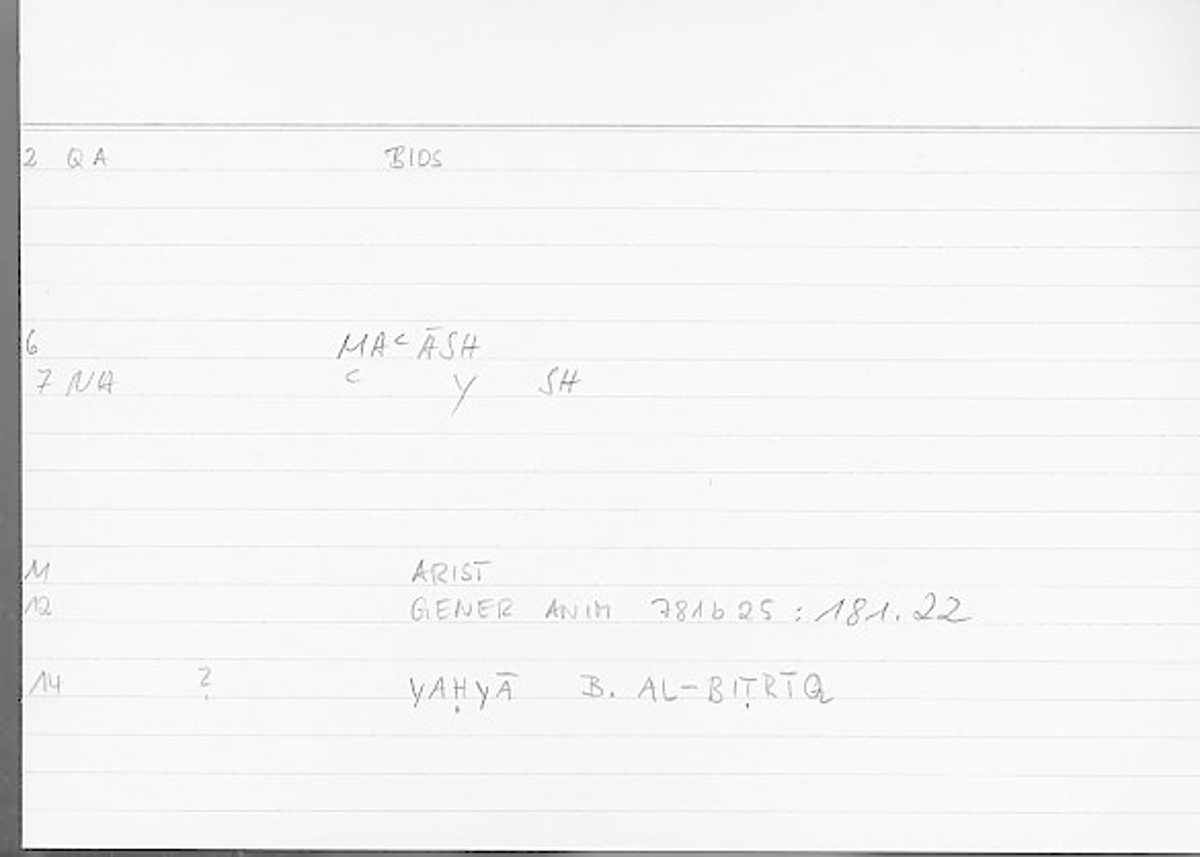 2 QA BIOS
6 MAᶜĀSH
7 NA ᶜ Y SH
11 ARIST
12 GENER ANIM 781b25 : 181.22
14 ? YAḤYĀ B. AL-BIṬRĪQ